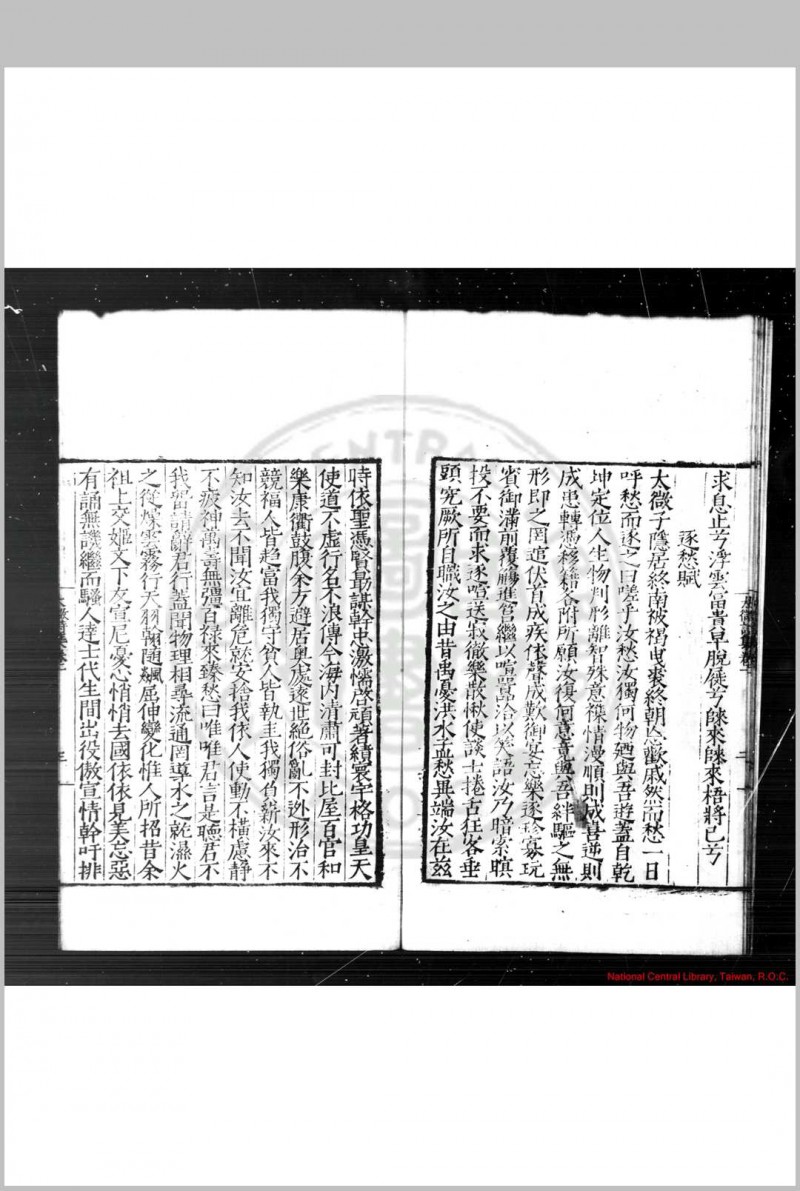 求息止兮浮雲富貴早脫屣兮歸來歸來梧將已兮
逐愁賦
太微子隱居終南被褐曳裘終朝忘歡戚然而愁一日
呼愁而逐之曰嗟乎汝愁汝獨何物廼與吾遊蓋自乾
坤定位人生物判形離智殊意襍情漫順則成喜逆則
成患轉馮移籍各附所願汝復何意竟與吾絆驅之無
形即之罔追伏首成疾依聲成歎御宴忘樂逐珍寡玩
省御滿前覆觴進莒繼以喧囂洽以笑語汝乃暗索瞋
投不要而求逐喧送寂徹樂散愀使談士捲舌狂客垂
頭究厥所自職汝之由昔禹憂洪水孟愁異端汝在茲
時依聖馮賢勖謀幹忠激懦啓頑著績寰宇格功皇天
使道不虛行名不浪傳今海内清肅可封比屋百官和
樂康衢鼓腹余方避居奧處遂世絕俗亂不逃形治不
競福人皆趨富我獨守貧人皆執圭我獨負薪汝來不
知汝去不聞汝宜離危就安捨我依人使動不橫慮靜
不疲神萬壽無彊百祿來臻愁曰唯唯君言是聽君不
我留請辭君行蓋聞物理相尋流通罔導水之乾濕火
之從燥雲霧行天羽翰隨飆屈伸變化惟人所招昔余
祖上交姬文下友宣尼憂心悄悄去國依依見美忘惡
有誦無譏繼而騷人達士代生間出役傲宣情幹吁排